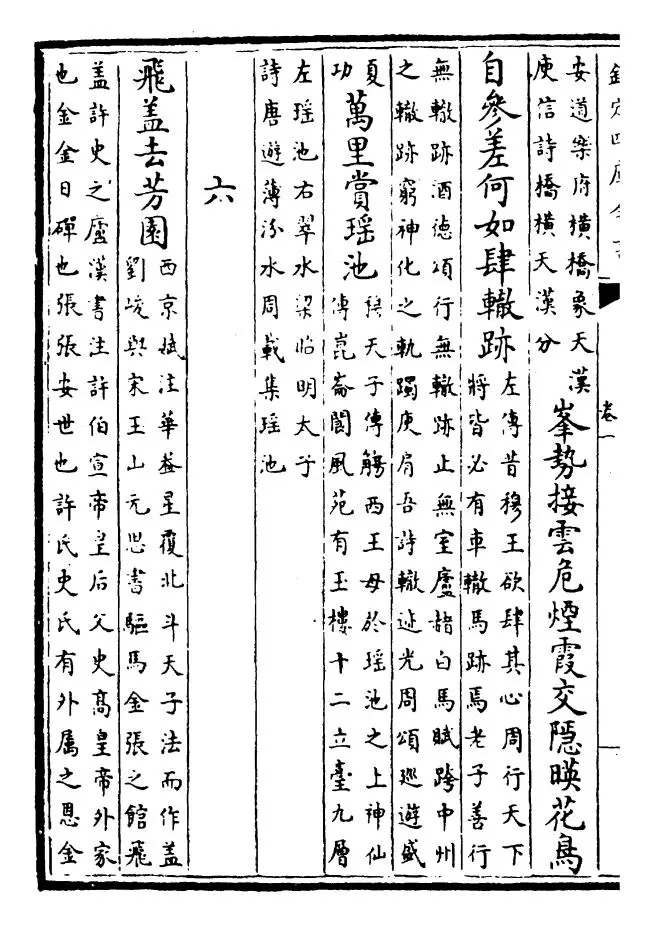 欽定四庫全書
卷一
安道樂府橫橋象天漢
庾信詩橋橫天漢分
峯勢接雲危煙霞交隱暎花鳥
自參差何如肆轍跡
左傳昔穆王欲肆其心周行天下
將皆必有車轍馬跡焉老子善行
無轍跡酒德頌行無轍跡止無室廬赭白馬賦跨中州
之轍跡窮神化之軌躅庾肩吾詩轍迹光周頌巡遊盛
夏
功
萬里賞瑤池
穆天子傳觴西王母於瑤池之上神仙
傳崑崙閬風苑有玉樓十二立臺九層
左瑤池右翠水梁昭明太子
詩唐遊薄汾水周載集瑤池
六
飛盖去芳園
西京賦注華蓋星覆北斗天子法而作蓋
劉峻與宋玉山元思書驅馬金張之館飛
盖許史之廬漢書注許伯宣帝皇后父史髙皇帝外家
也金金日磾也張張安世也許氏史氏有外属之恩金